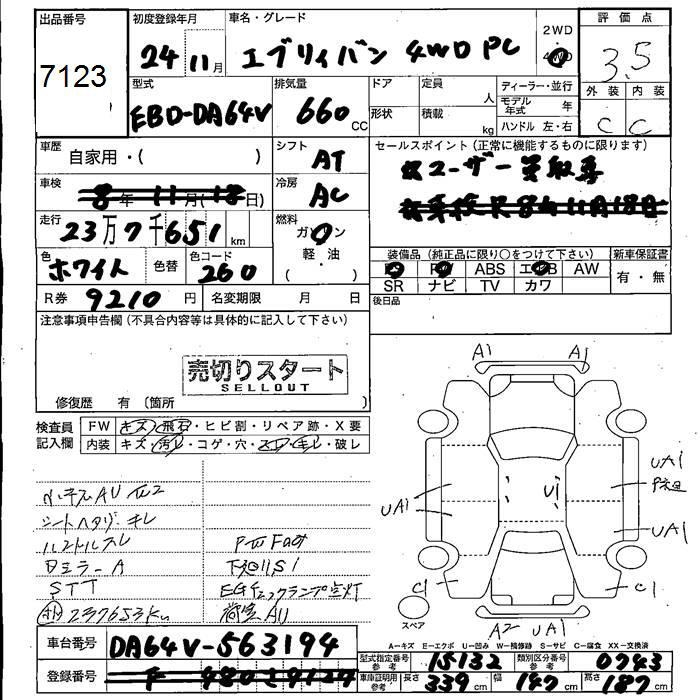 出品番号
7123
初度登録年月
24年11月
車名・グレード
エブリィバン 4WD PC
2WD
4WD
評価点
3.5
型式
EBD-DA64V
排気量
660 CC
ドア
形状
定員 人
積載 kg
ディーラー・並行
モデル年式 年
ハンドル 左・右
外装 内装
C C
車歴
自家用・( )
シフト
AT
セールスポイント (正常に機能するものに限ります)
ユーザー買取車
車検
8年 11月(18日)
冷房
AC
走行
23万7千651 km
燃料
ガソリン
軽・油
( )
色
ホワイト
色替
色コード
260
装備品 (純正品に限り○をつけて下さい)
PS PW ABS エアB AW
SR ナビ TV カワ
新車保証書
有・無
R券 9210 円
名変期限 月 日
後日品
注意事項申告欄 (不具合内容等は具体的に記入して下さい)
売切りスタート
SELLOUT
修復歴 有 (箇所 )
検査員記入欄
FW キズ・飛石・ヒビ割・リペア跡・X要
内装 キズ・汚レ・コゲ・穴・スレ・キレ・破レ
シートヘタリ・キレ
ハンドルスレ
Dミラー A
STT
237653km
下廻りS1
EGチェックランプ点灯
荷室AU
A1 A1
UA1
UA1
U1
UA1
C1 C1
A2 UA1
スペア
A=キズ E=エクボ U=凹み W=補修跡 S=サビ C=腐食 XX=交換済
車台番号 DA64V-563194
登録番号
型式指定番号 参考 15132
類別区分番号 参考 0743
車庫証明用 参考 長さ 339 cm 幅 147 cm 高さ 187 cm